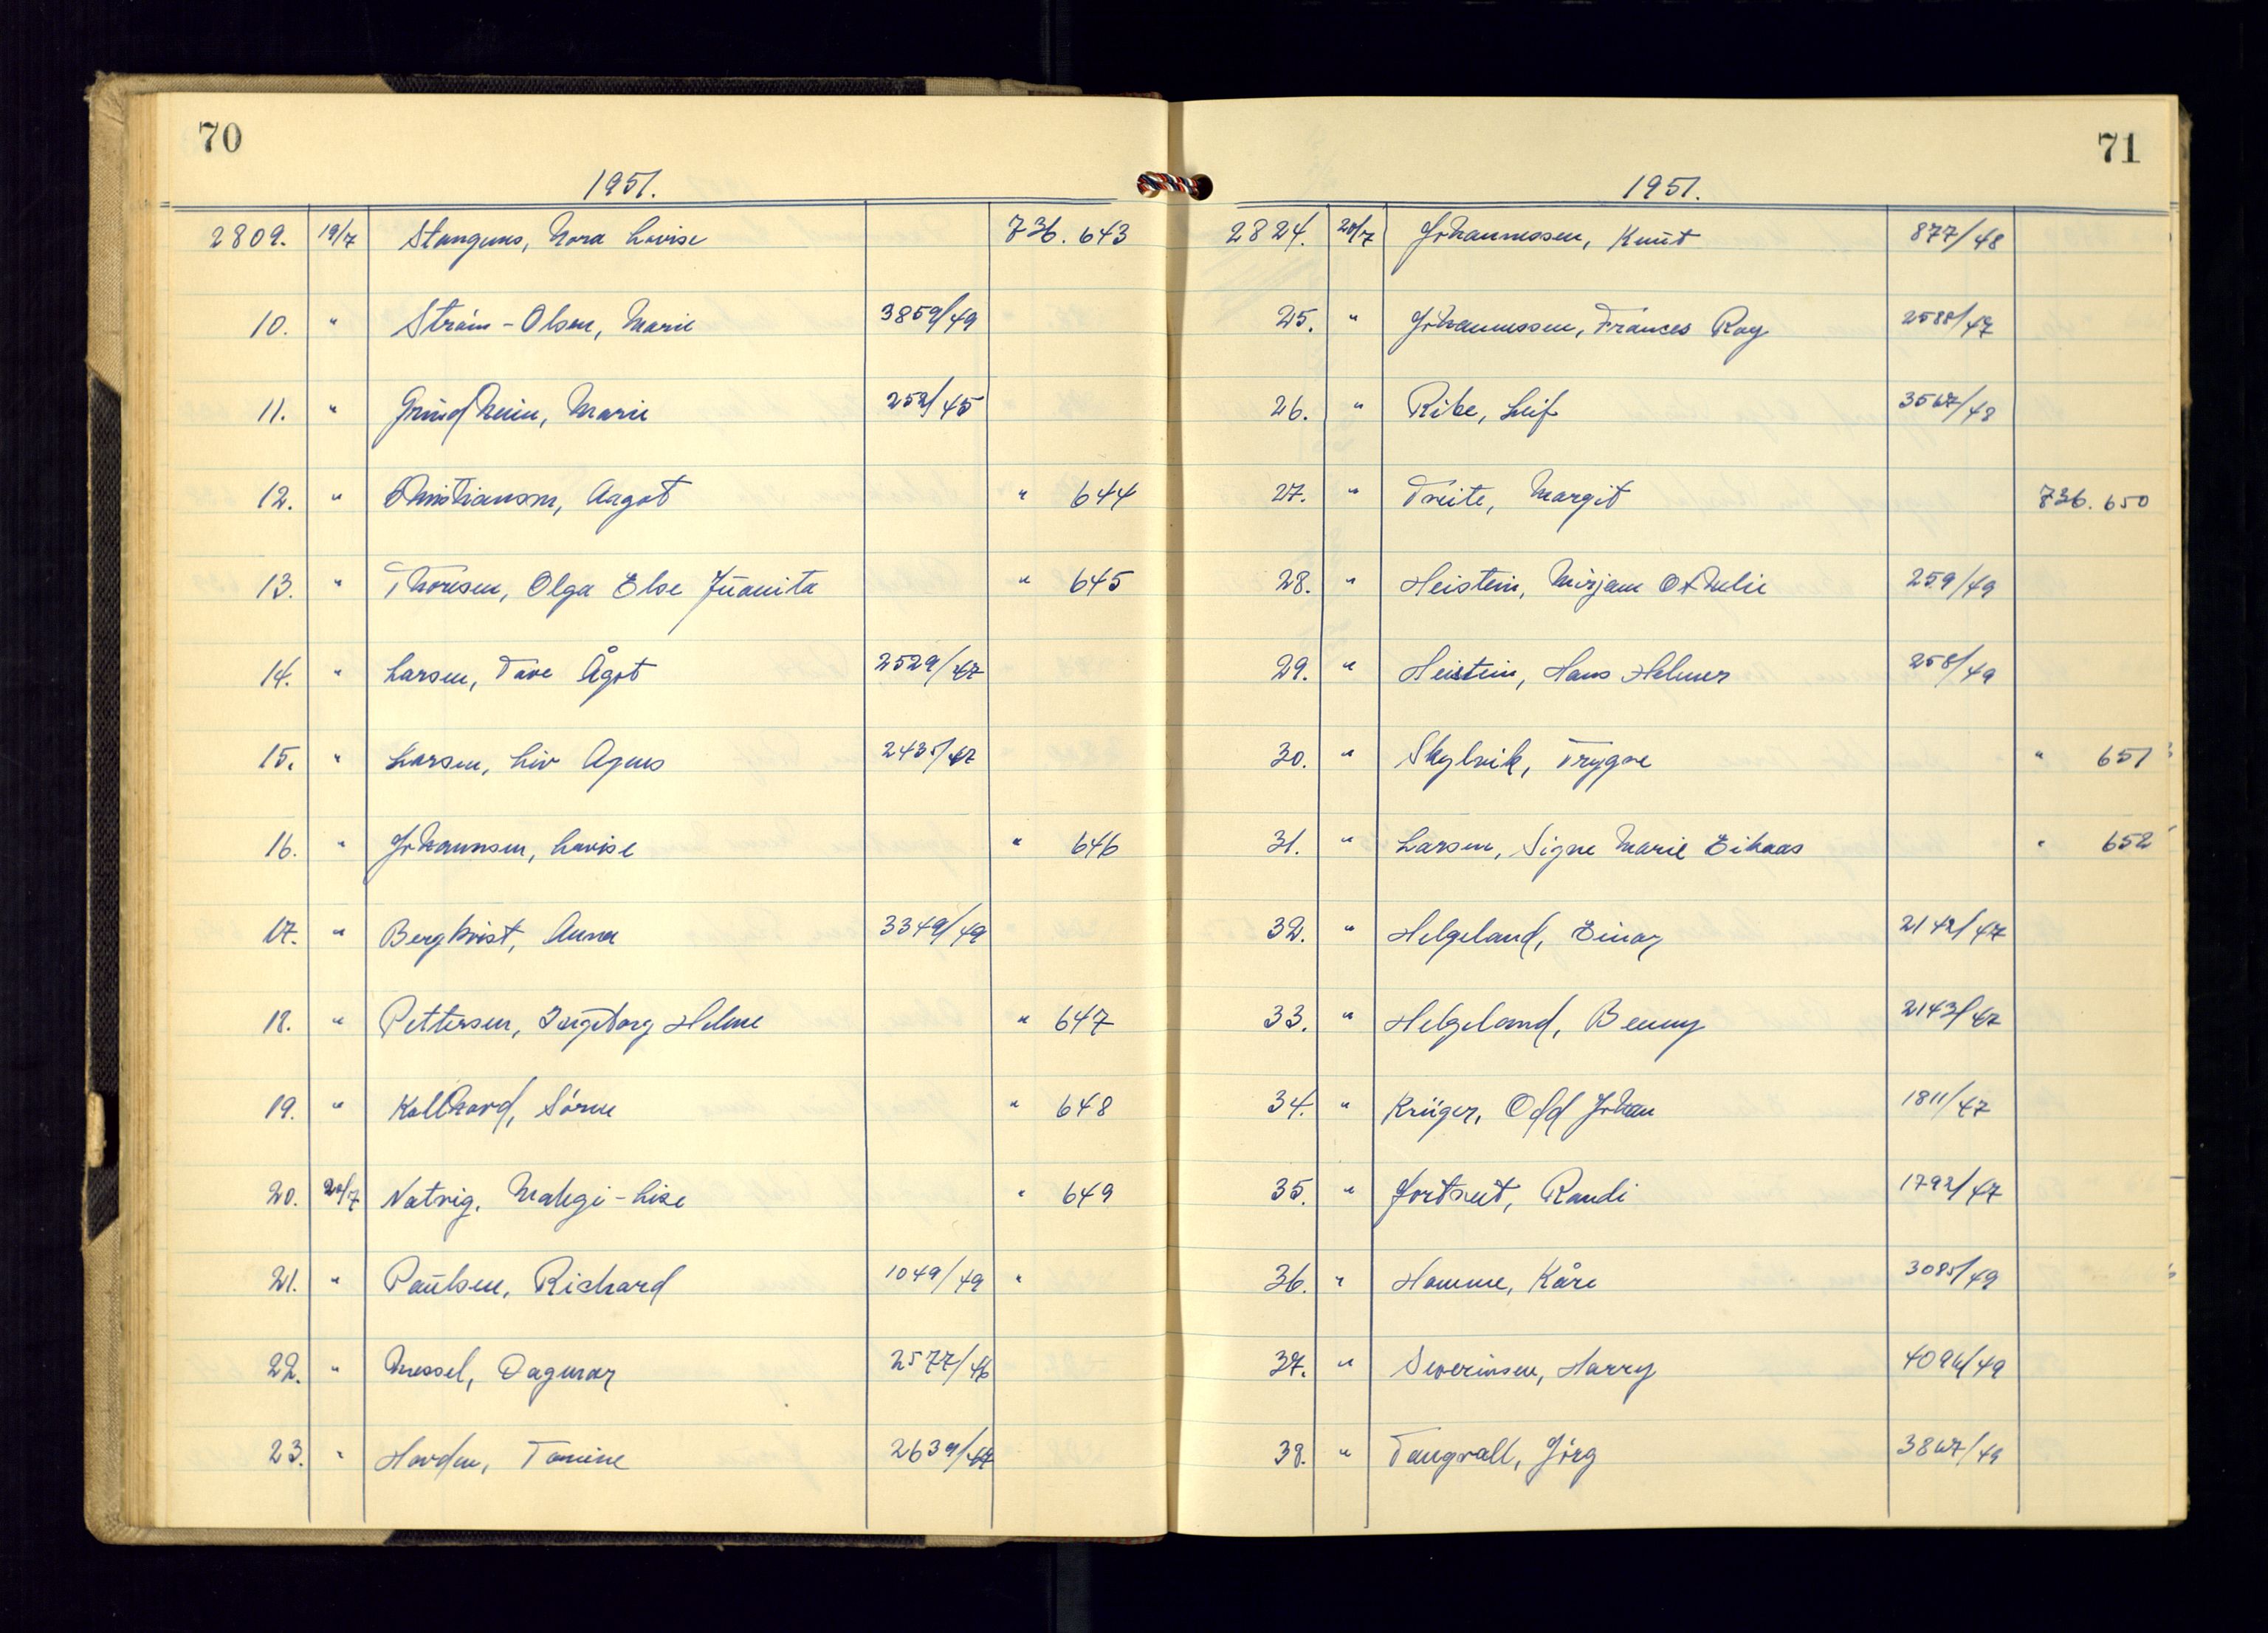 70
1951.
2809. 19/7 Stangnes, Nora Lovise 736.643
10. " Strøm-Olsen, Marie 3859/49
11. " Grindheim, Marie 252/45
12. " Christiansen, Aagot " 644
13. " Thoresen, Olga Else Juanita " 645
14. " Larsen, Tove Ågot 2529/47
15. " Larsen, Liv Agnes 2435/47
16. " Johannsen, Lovise " 646
17. " Bergkvist, Anna 3349/49
18. " Pettersen, Ingeborg Helene " 647
19. " Kallhovd, Sørine " 648
20. 20/7 Natvig, Mahgi-Lise " 649
21. " Paulsen, Richard 1049/49 "
22. " Messel, Dagmar 2577/46
23. " Hovden, Tomine 2639/47
71
1951.
2824. 20/7 Johannessen, Knut 877/48
25. " Johannessen, Frances Ray 2588/47
26. " Ribe, Leif 3567/48
27. " Treite, Margit 736.650
28. " Heistein, Mirjam Othelie 259/49
29. " Heistein, Hans Helmer 258/49
30. " Skylvik, Trygve " 651
31. " Larsen, Signe Marie Eikaas " 652
32. " Helgeland, Einar 2142/47
33. " Helgeland, Benny 2143/47
34. " Krüger, Odd Johan 1811/47
35. " Randi 1792/47
36. " Homme, Kåre 3085/49
37. " Severinsen, Harry 4096/49
38. " Tangvall, Jörg 3867/49